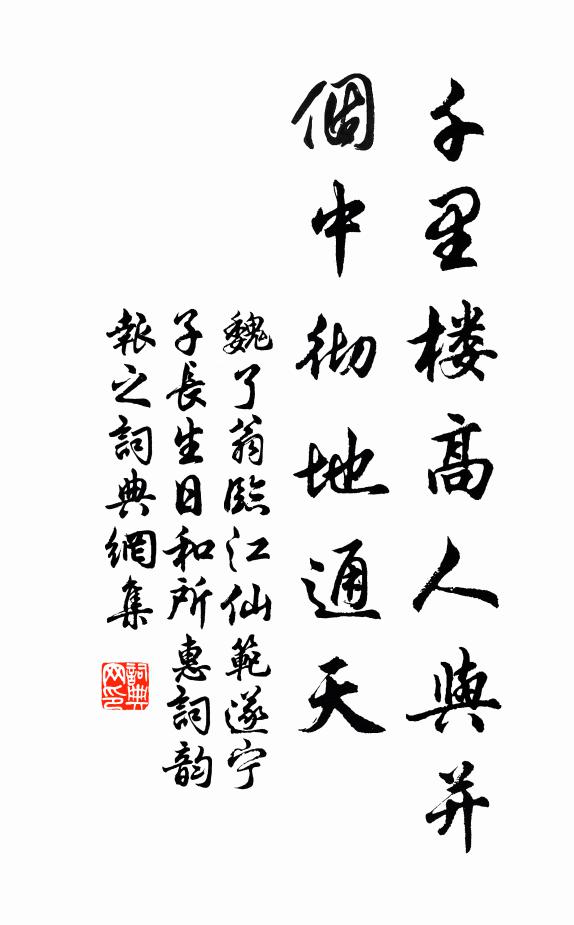 千里楼高人與并
個中彻地通天
魏了翁臨江仙範遂宁
子長生日和所惠詞韵
報之詞典網集
詞典网印